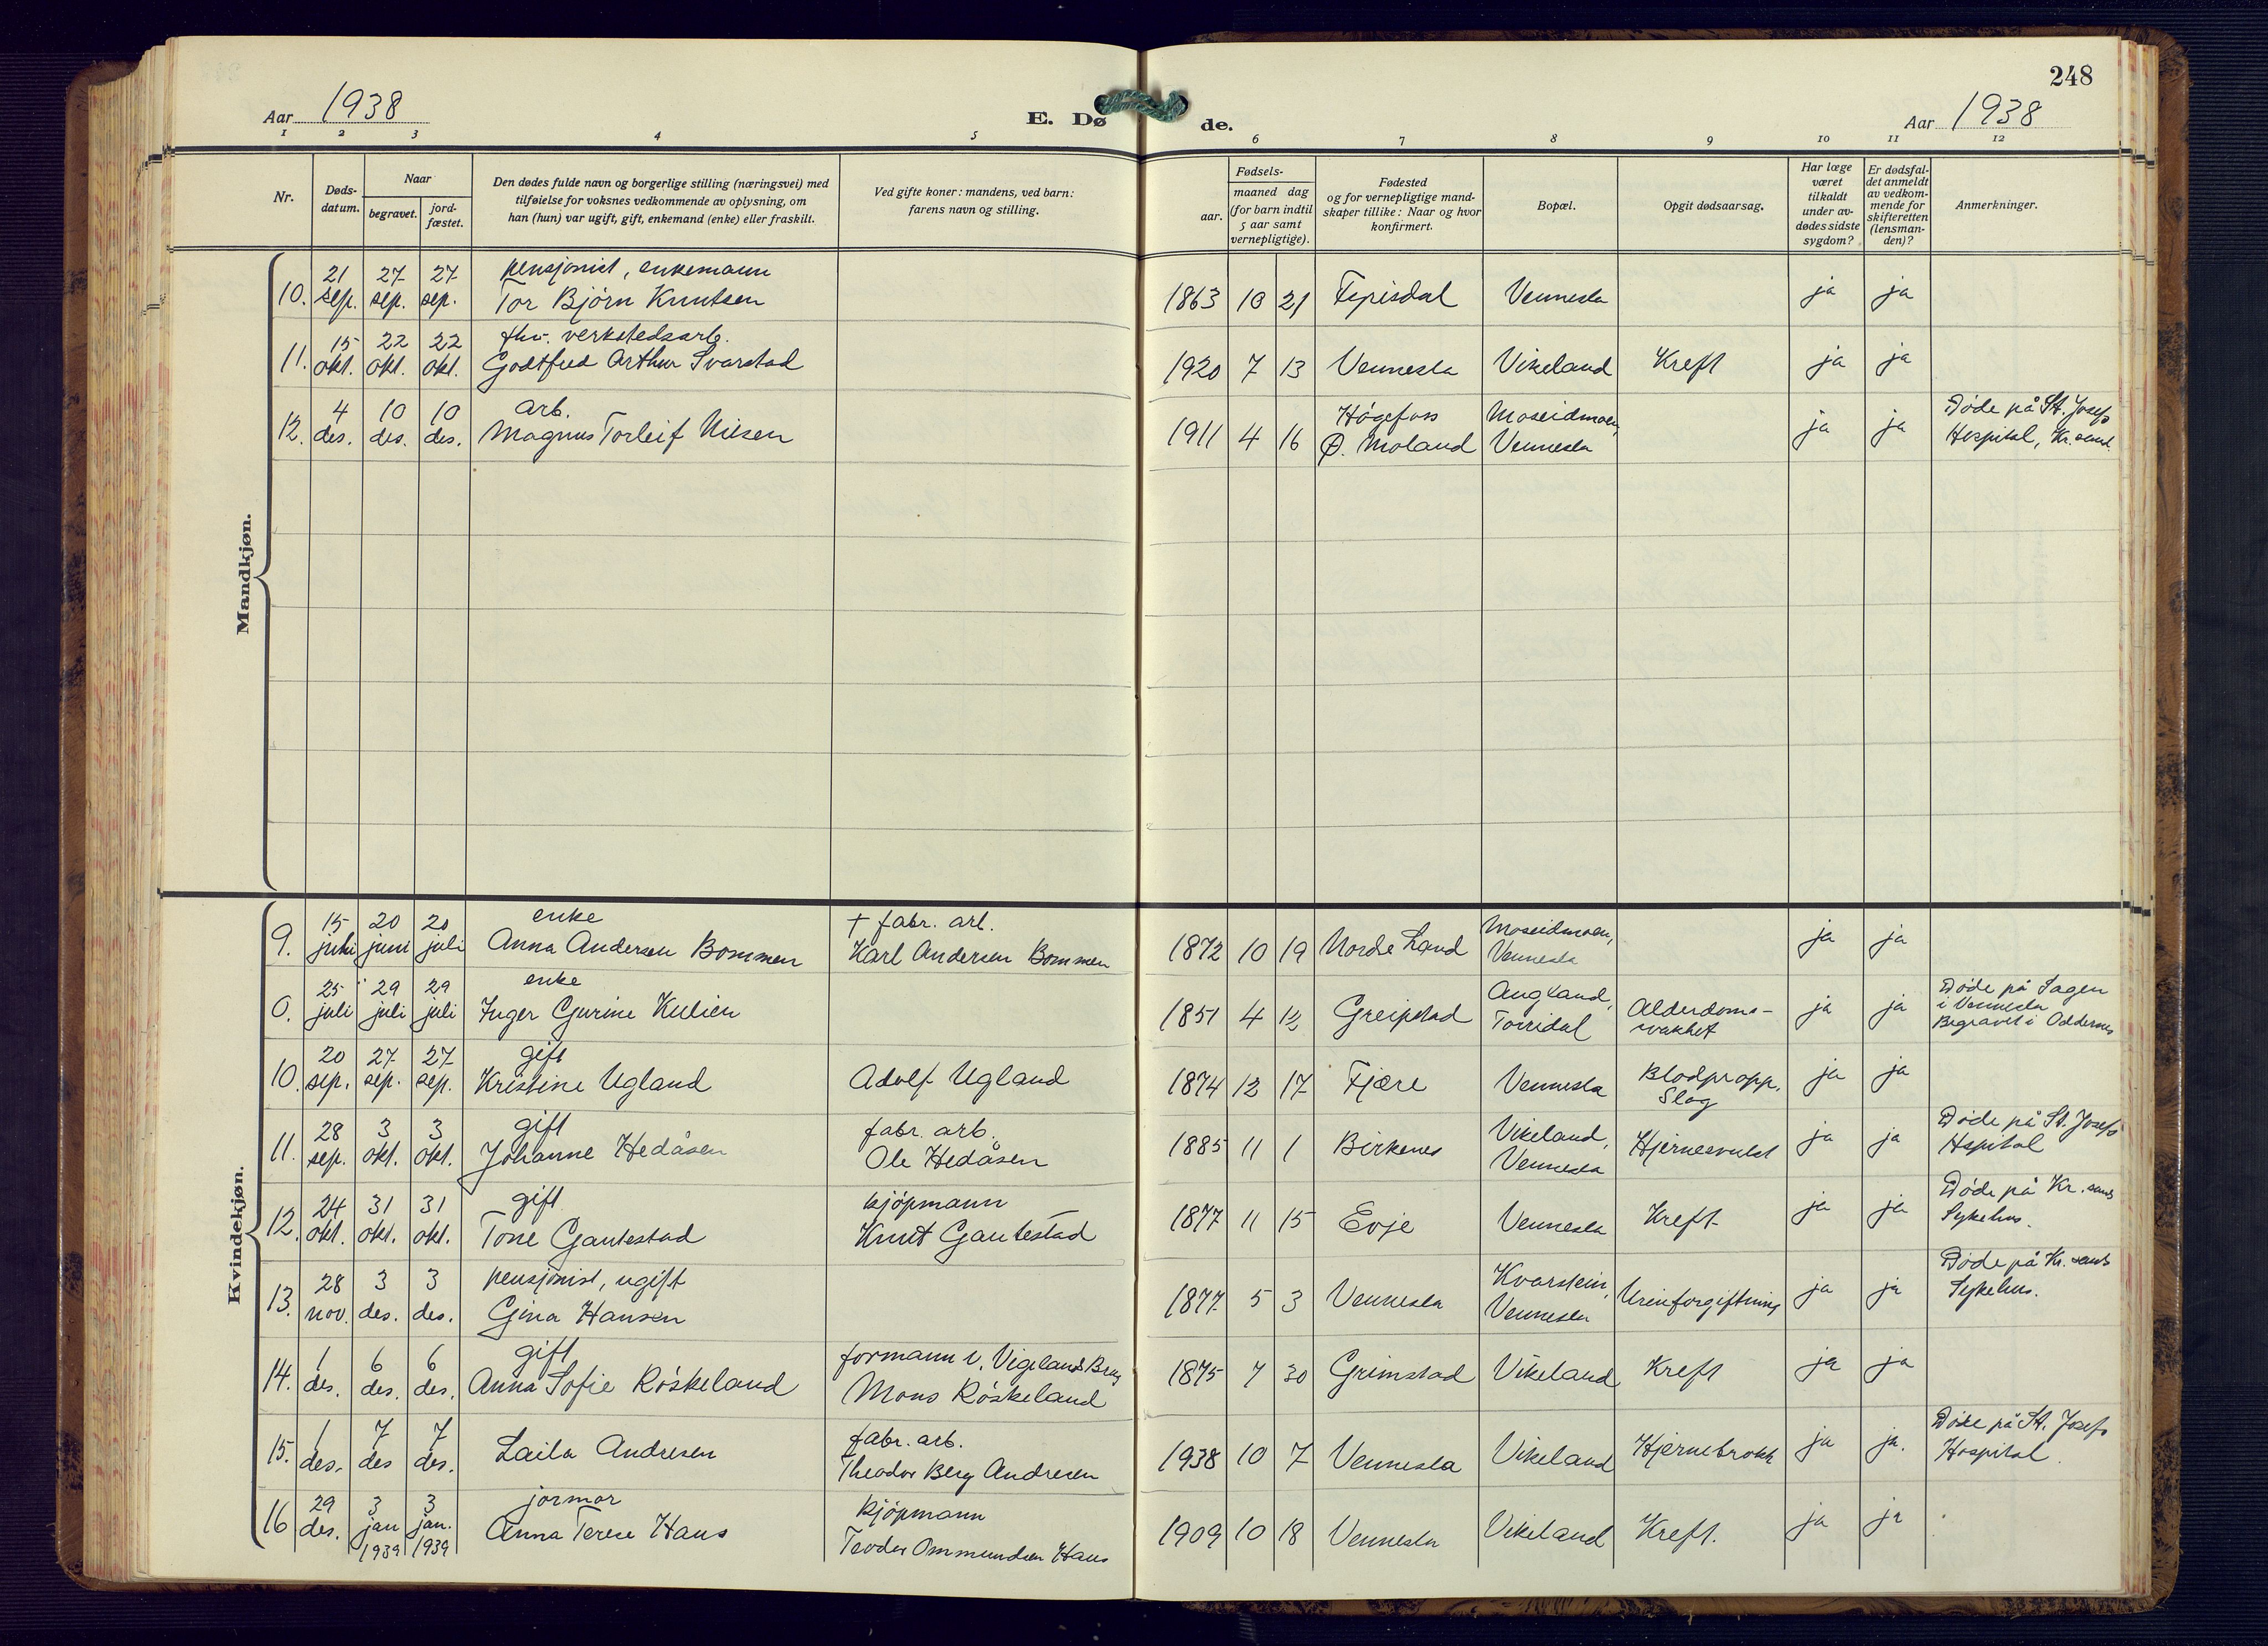 248
Aar 1938
E. Dø de.
Aar 1938
1 2 3 4 5 6 7 8 9 10 11 12
Nr.
Døds-
datum.
Naar
begravet.
jord-
fæstet.
Den dødes fulde navn og borgerlige stilling (næringsvei) med
tilføielse for voksnes vedkommende av oplysning, om
han (hun) var ugift, gift, enkemand (enke) eller fraskilt.
Ved gifte koner: mandens, ved barn:
farens navn og stilling.
Fødsels-
aar.
maaned dag
(for barn indtil
5 aar samt
vernepligtige).
Fødested
og for vernepligtige mand-
skaper tillike: Naar og hvor
konfirmert.
Bopæl.
Opgit dødsaarsag.
Har læge
været
tilkaldt
under av-
dødes sidste
sygdom?
Er dødsfal-
det anmeldt
av vedkom-
mende for
skifteretten
(lensman-
den)?
Anmerkninger.
Mandkjøn.
21 27 27 pensjonist, enkemann
10. sep. sep. sep. Tor Bjørn Knutsen 1863 10 21 Vennesla ja ja
15 22 22 fhv. verkstedsarb.
11. okt. okt. okt. Godtfred Arthur Svarstad 1920 7 13 Vennesla Vikeland Kreft ja ja
4 10 10 arb. Høgefoss Moseidmoen, Døde på St. Josefs
12. des. des. des. Magnus Torleif Nilsen 1911 4 16 Ø. Moland Vennesla ja ja Hospital, Kr.sand.
Kvindekjøn.
15 20 20 enke + fabr. arb. Moseidmoen,
9. juli juni juli Anna Andersen Bommen Karl Andersen Bommen 1872 10 19 Nordre Land Vennesla ja ja
25 29 29 enke Augland, Døde på Sagen
i Vennesla
0. juli juli juli Inger Gurine 1851 4 12 Greipstad Torridal Alderdoms-
svakhet ja ja Begravet i Oddernes
20 27 27 gift
10. sep. sep. sep. Kristine Ugland Adolf Ugland 1874 12 17 Fjære Vennesla Blodpropp,
Slag ja ja
28 3 3 gift fabr. arb. Vikeland, Døde på St. Josefs
11. sep. okt. okt. Johanne Hedåsen Ole Hedåsen 1885 11 1 Birkenes Vennesla Hjernesvulst ja ja Hspital
24 31 31 gift kjøpmann Døde på Kr.sands
12. okt. okt. okt. Tone Gautestad Knut Gautestad 1877 11 15 Evje Vennesla Kreft ja ja Sykehus.
28 3 3 pensjonist, ugift Kvarstein, Døde på Kr.sands
13. nov. des. des. Gina Hansen 1877 5 3 Vennesla Vennesla Urinforgiftning ja ja Sykehus.
1 6 6 gift formann v. Vigelands Bruk
14. des. des. des. Anna Sofie Röskeland Mons Röskeland 1875 7 30 Grimstad Vikeland Kreft ja ja
1 7 7 fabr. arb. Døde på St. Josefs
15. des. des des. Laila Andresen Theodor Berg Andresen 1938 10 7 Vennesla Vikeland Hjernebrokk ja ja. Hospital.
29 3 3 jormor kjöpmann
16 des. jan jan. Anna Terese Haus Teodor Ommundsen Haus 1909 10 18 Vennesla Vikeland Kreft. ja ja
1939 1939